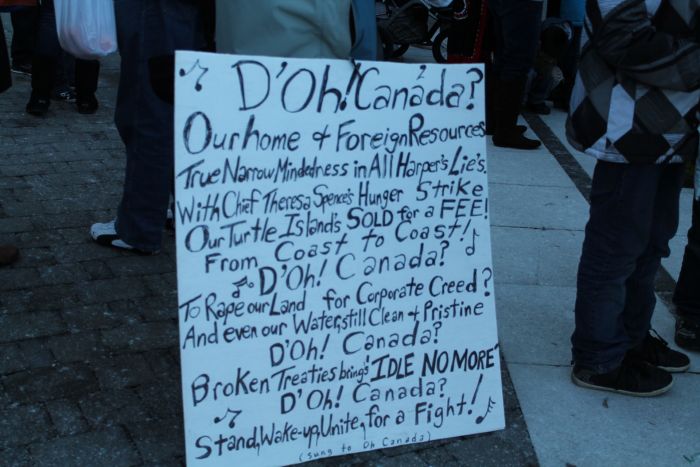 D'Oh! Canada?
Our home & Foreign Resources
True Narrow Mindedness in All Harper's Lie's.
With Chief Theresa Spence's Hunger Strike
Our Turtle Island's SOLD for a FEE!
From Coast to Coast!
D'Oh! Canada?
To Rape our Land for Corporate Creed?
And even our Water, still Clean & Pristine
D'Oh! Canada?
Broken Treaties brings "IDLE NO MORE"
D'Oh! Canada?
Stand, Wake-up, Unite, for a Fight!
(Sung to Oh Canada)